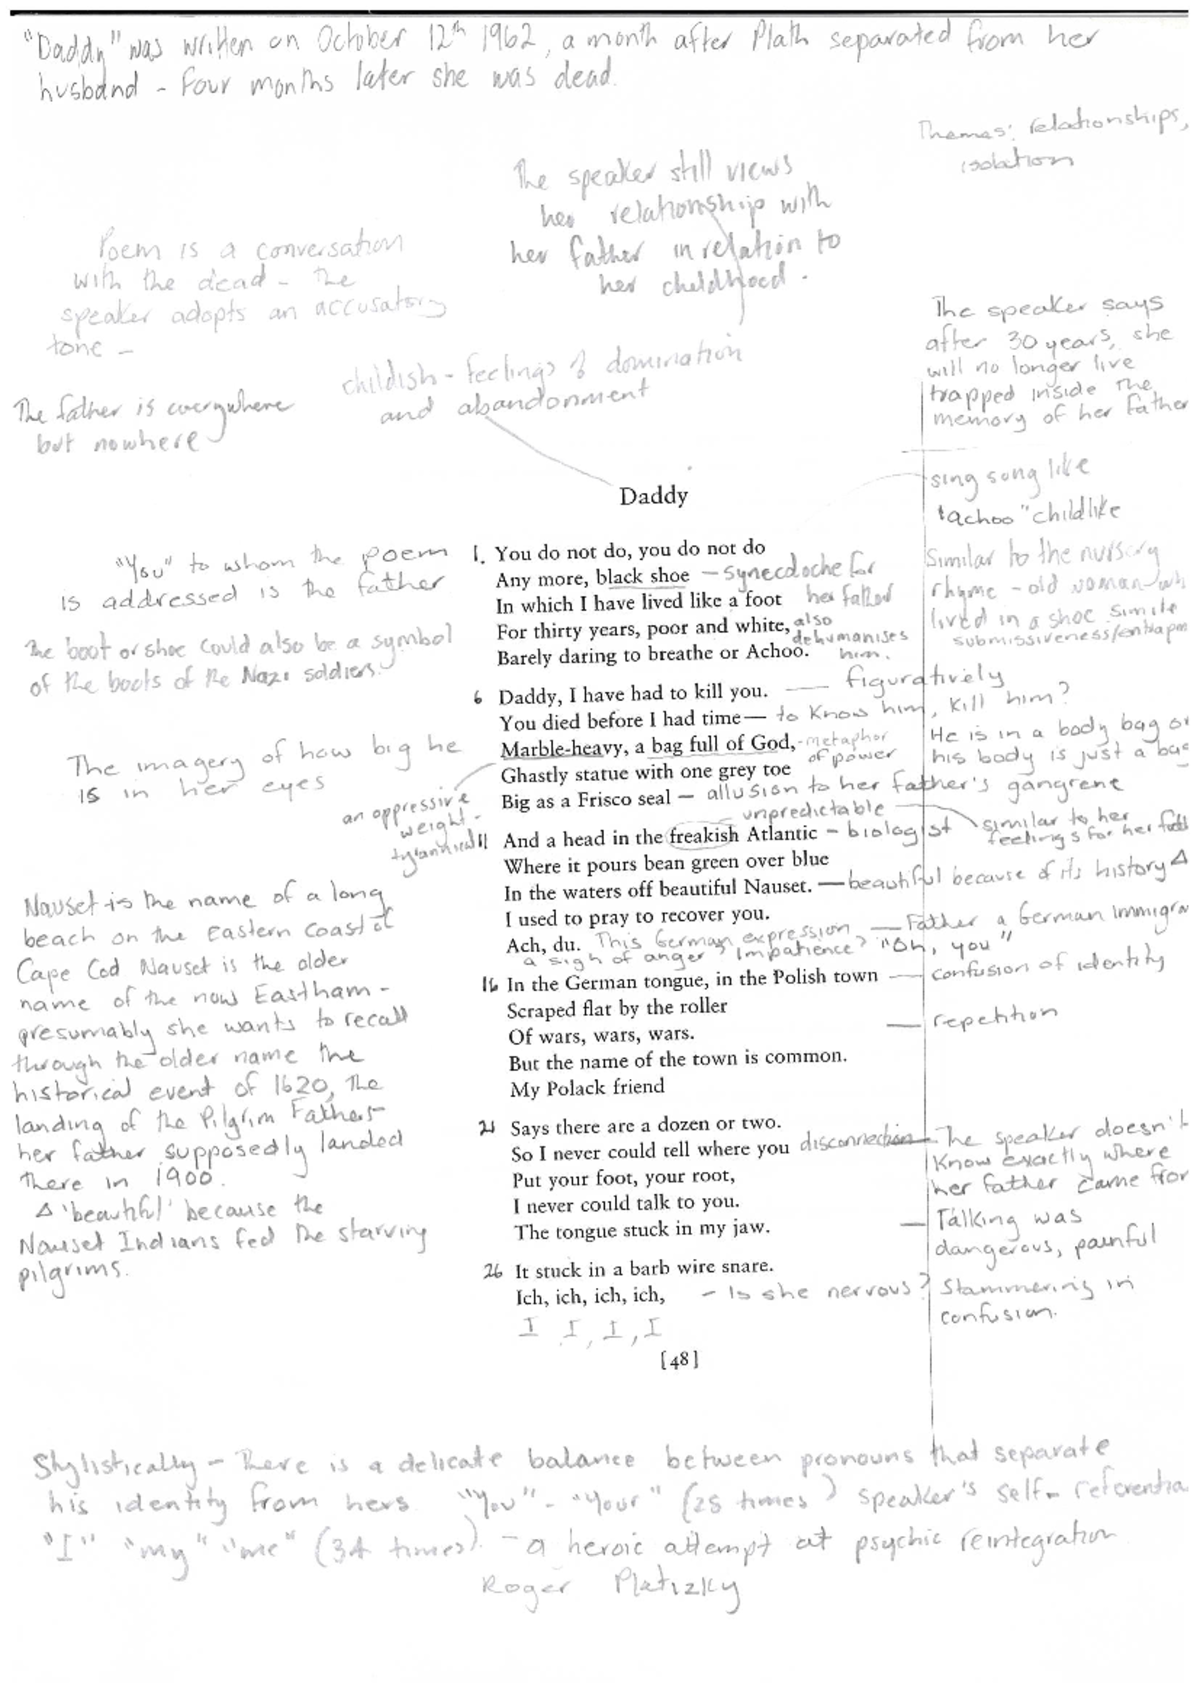 "Daddy" was written on October 12th 1962, a month after Plath separated from her
husband - four months later she was dead.
Themes: relationships,
isolation
The speaker still views
her relationship with
her father in relation to
her childhood.
Poem is a conversation
with the dead - the
speaker adopts an accusatory
tone -
The father is everywhere
but nowhere
childish - feelings of domination
and abandonment
The speaker says
after 30 years, she
will no longer live
trapped inside the
memory of her father
sing song like
"achoo" childlike
Similar to the nursery
rhyme - old woman wh
lived in a shoe simile
submissiveness/entrapm
"You" to whom the poem
is addressed is the father
The boot or shoe could also be a symbol
of the boots of the Nazi soldiers.
The imagery of how big he
is in her eyes
an oppressive
weight -
tyrannical
Nauset is the name of a long
beach on the Eastern coast of
Cape Cod Nauset is the older
name of the now Eastham -
presumably she wants to recall
through the older name the
historical event of 1620, the
landing of the Pilgrim Fathers -
her father supposedly landed
there in 1900.
Δ 'beautiful' because the
Nauset Indians fed the starving
pilgrims.
Daddy
1. You do not do, you do not do
Any more, black shoe - synecdoche for
her father
In which I have lived like a foot
For thirty years, poor and white, also
dehumanises
him.
Barely daring to breathe or Achoo.
6 Daddy, I have had to kill you. — figuratively
You died before I had time— to know him, kill him?
Marble-heavy, a bag full of God, - metaphor
of power
He is in a body bag or
his body is just a bag
Ghastly statue with one grey toe
Big as a Frisco seal — allusion to her father's gangrene
unpredictable
similar to her
feelings for her fath
11 And a head in the freakish Atlantic - biologist
Where it pours bean green over blue
In the waters off beautiful Nauset. — beautiful because of its history Δ
I used to pray to recover you.
Ach, du. This German expression — Father a German immigra
a sigh of anger, impatience? "Oh, you"
16 In the German tongue, in the Polish town — confusion of identity
Scraped flat by the roller
Of wars, wars, wars. — repetition
But the name of the town is common.
My Polack friend
21 Says there are a dozen or two.
So I never could tell where you disconnection — The speaker doesn't
know exactly where
her father came from
Put your foot, your root,
I never could talk to you.
The tongue stuck in my jaw. — Talking was
dangerous, painful
26 It stuck in a barb wire snare.
Ich, ich, ich, ich, - Is she nervous? Stammering in
confusion.
I I, I, I
[48]
Stylistically - There is a delicate balance between pronouns that separate
his identity from hers. "You" - "Your" (28 times) speaker's self-referentia
"I" "my" "me" (34 times) - a heroic attempt at psychic reintegration
Roger Platizky